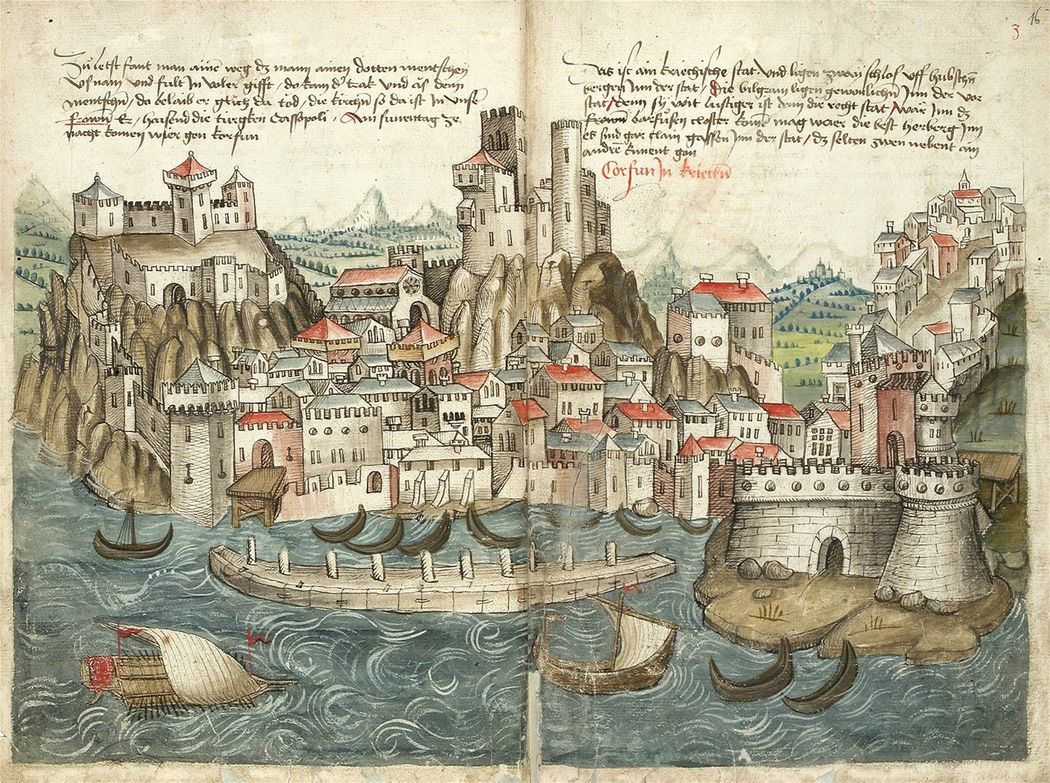 16
3
Zů letst fant man ainen weg dz mann ainen dotten mentschen
Usnam und fult In voler gifft / do kam d' trak und as den
mentschen / do belaib er glich da tod / die kirchen so da ist In unser
frowen Er / haisend die türgken Cassopoli / Am sunentag ze
nacht komen wier gen korfun
Das ist ain kriechische stat und ligen zwaÿ schlos uff hübschen
bergen Inn der stat / Die bilgran ligen gewonlichn Inn der vor
stat / denn sÿ wit lustiger ist dan die recht stat / wär Inn dz
barfüsen closter komen mag wäre die best herberg Inn
es sind gar clain gassen Inn der stat / dz selten zwen nebent ain
andre kument gon
Corfun In kriechen